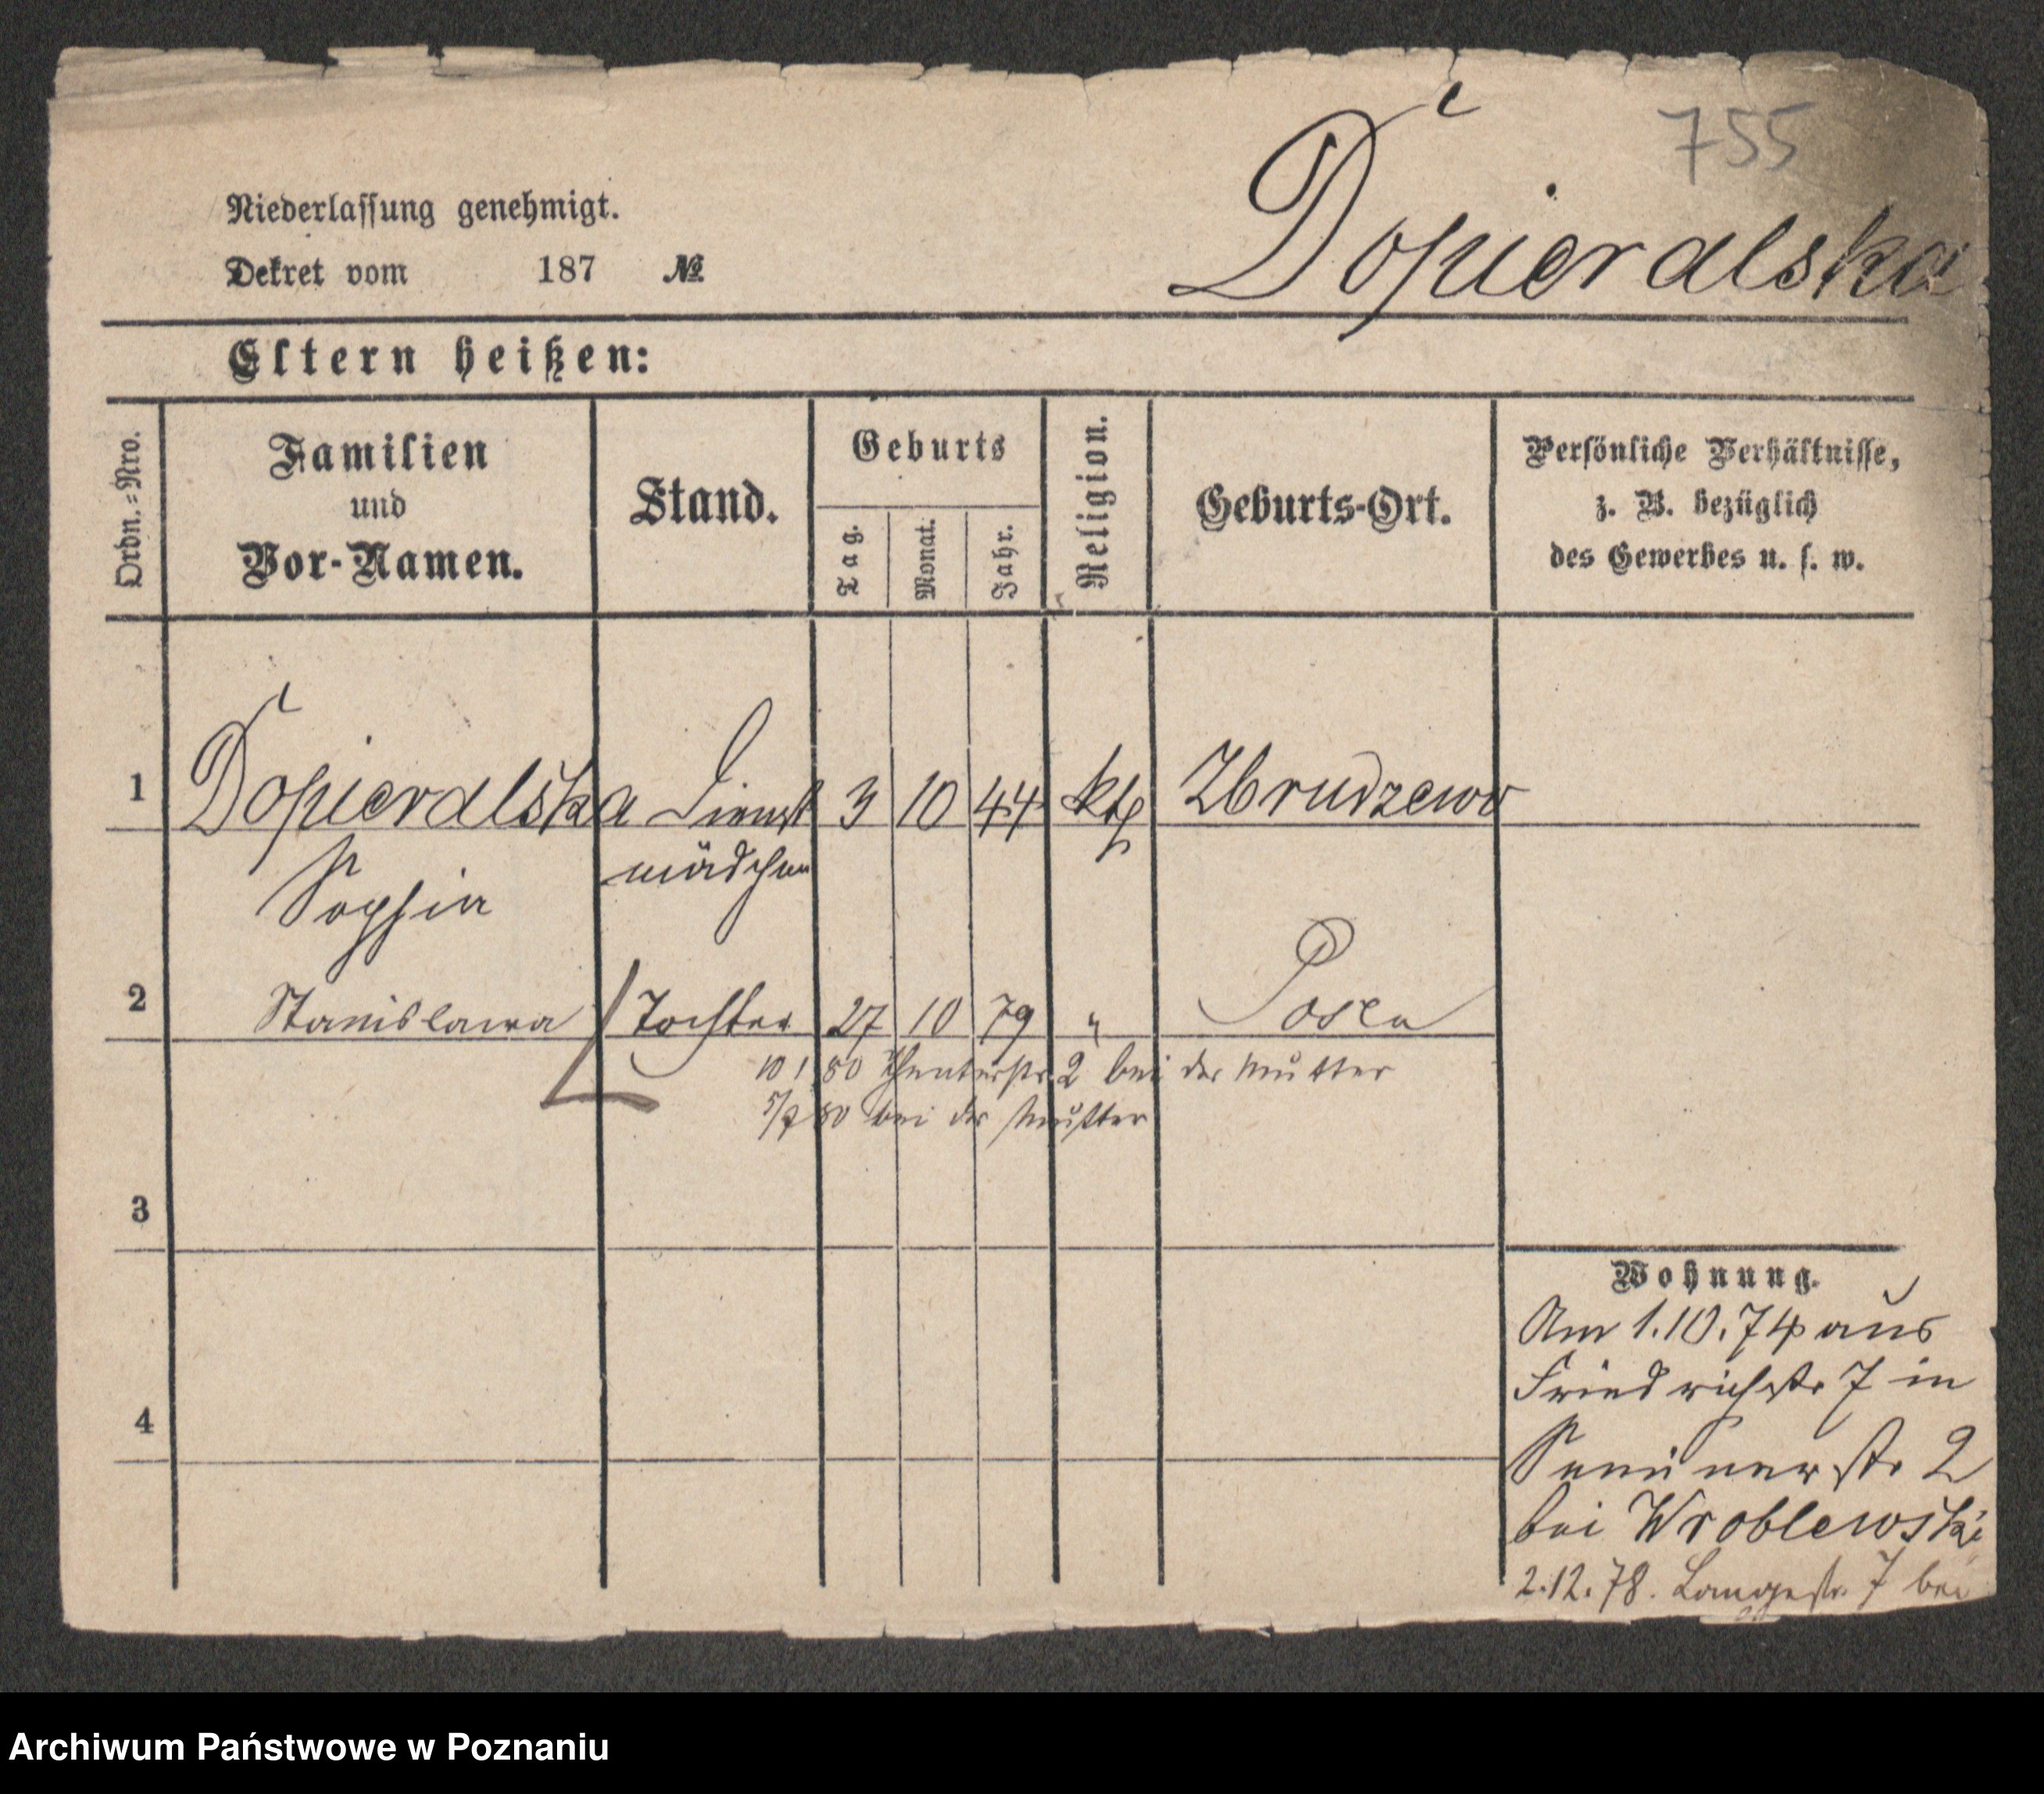 755
Dopieralska
Niederlassung genehmigt.
Dekret vom 187 №
Eltern heißen:
Ordn.=Nro.
Familien
und
Vor-Namen.
Stand.
Geburts
Tag.
Monat.
Jahr.
Religion.
Geburts-Ort.
Persönliche Verhältnisse,
z. B. bezüglich
des Gewerbes u. s. w.
1 Dopieralska Dienst 3 10 44 kth Zbrudzewo
Sophia mädchen
2 Stanislawa Tochter 27 10 79 " Posen
10 1 80 Theaterstr. 2 bei der Mutter
5/7 80 bei der Mutter
3
4
Wohnung.
Am 1.10.74 aus
Friedrichstr 7 in
str 2
bei Wroblewski
2.12.78. Langestr. 7 bei
Archiwum Państwowe w Poznaniu